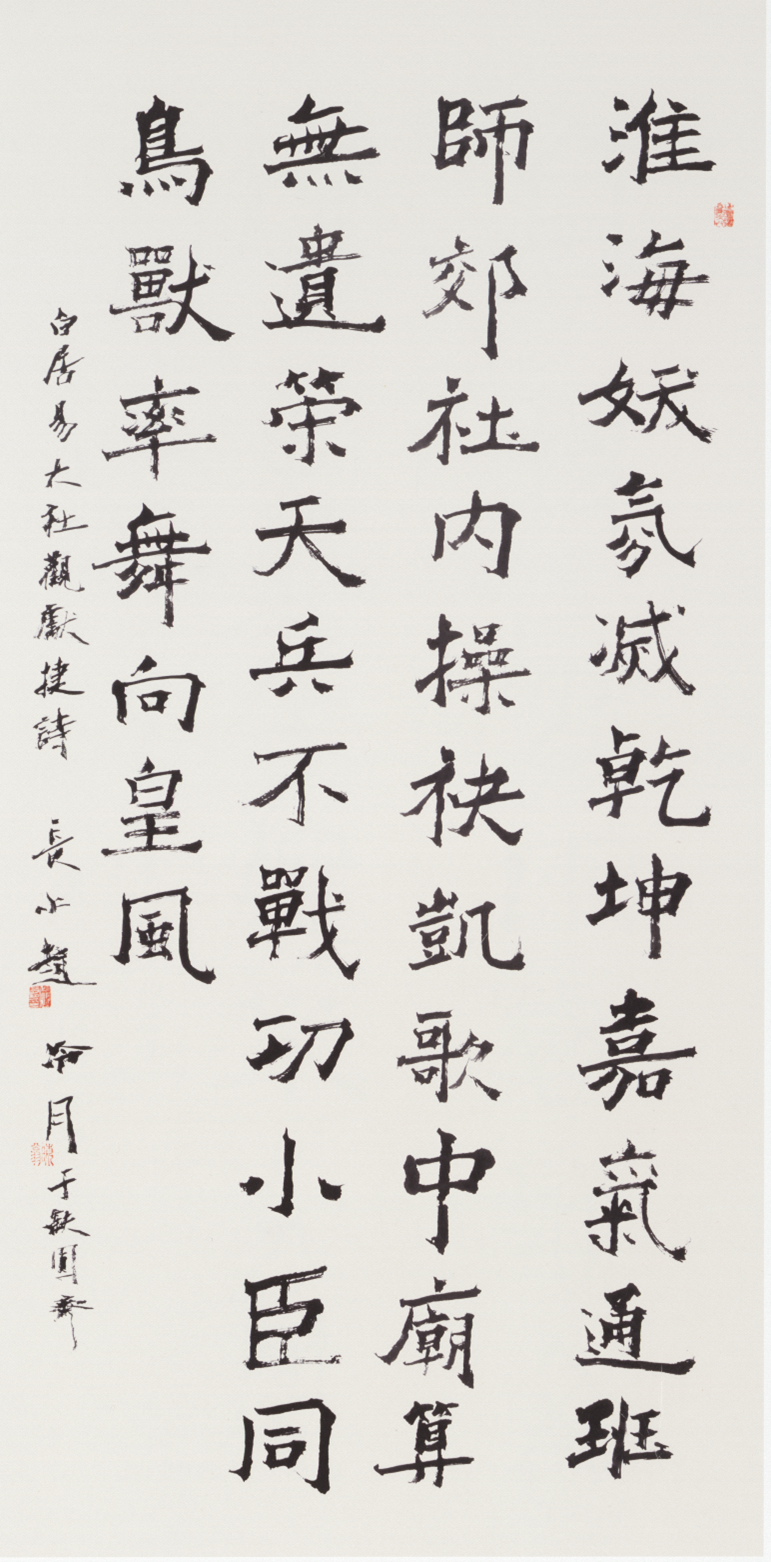 淮海妖氛滅乾坤嘉氣通班
師郊社內操袂凱歌中廟算
無遺策天兵不戰功小臣同
鳥獸率舞向皇風
白居易大社觀獻捷詩 長 趙 冷月于缺圓齋